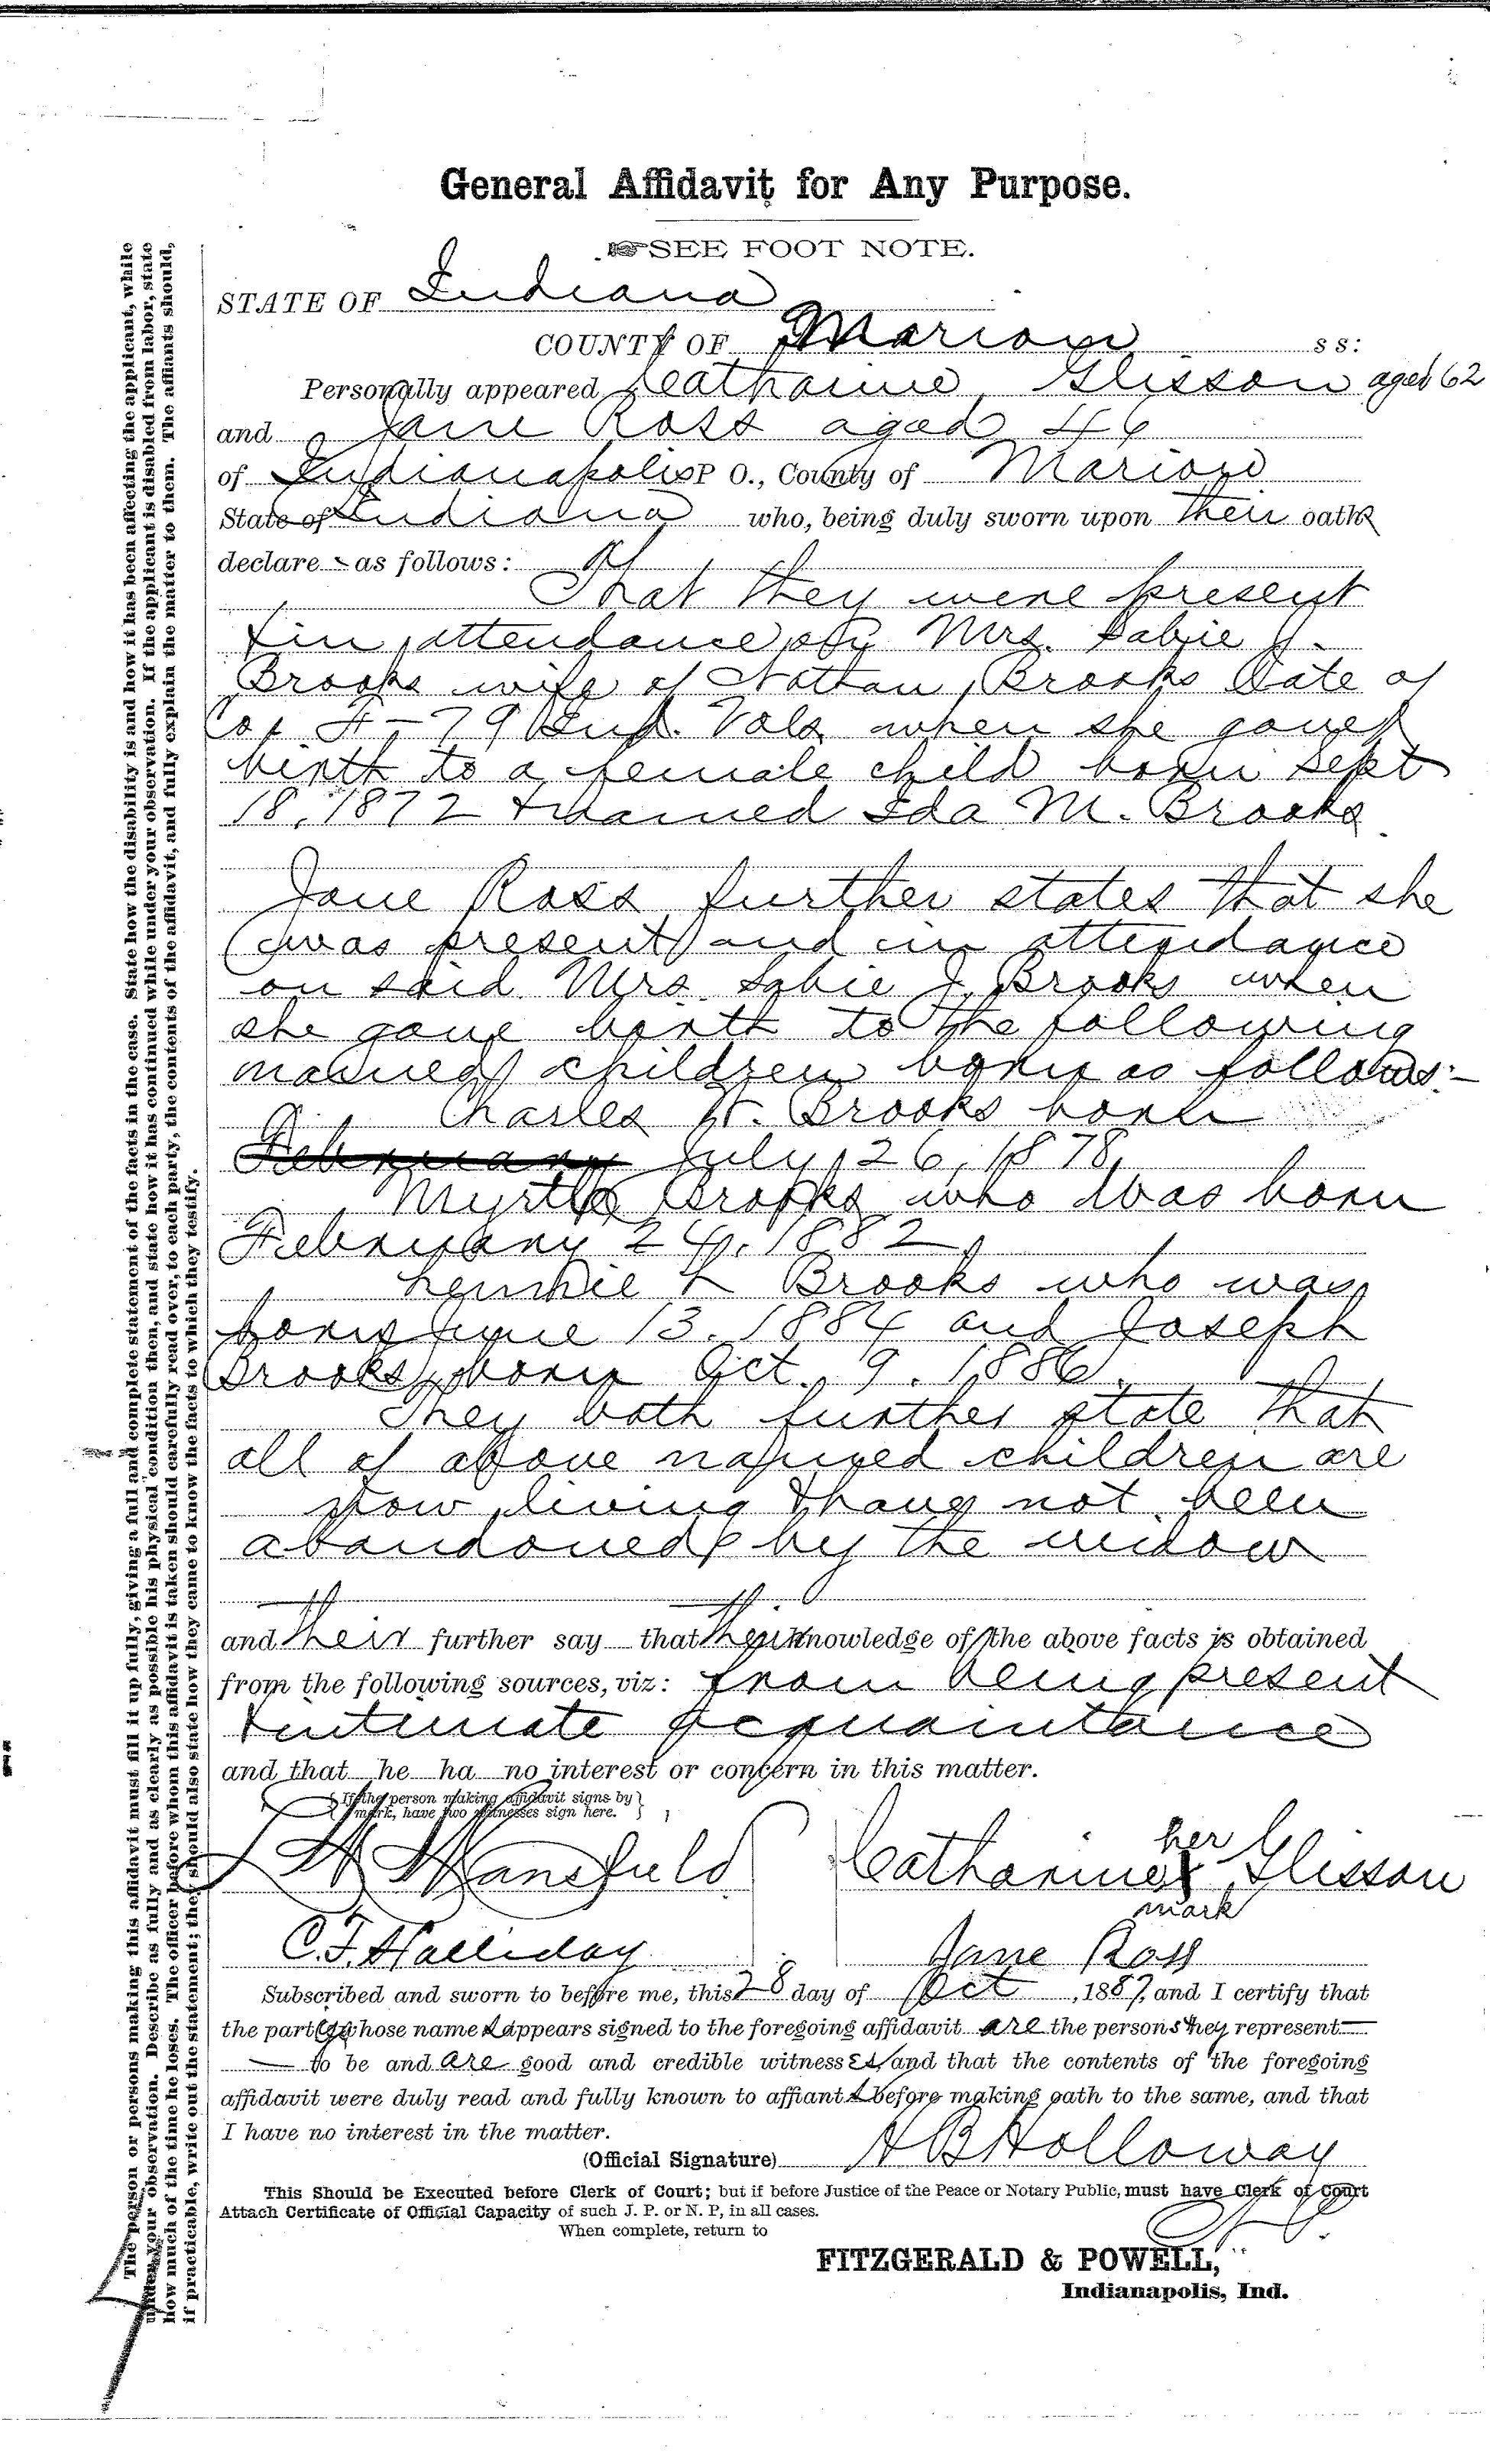 General Affidavit for Any Purpose.
SEE FOOT NOTE.
STATE OF Indiana
COUNTY OF Marion ss:
Personally appeared Catharine Glisson aged 62
and Jane Ross aged 46
of Indianapolis P O., County of Marion
State of Indiana who, being duly sworn upon their oaths
declare as follows:
That they were present
& in attendance on Mrs. Sabie J.
Brooks wife of Nathan Brooks Late of
Co. 79 Ind. Vols when she gave
birth to a female child born Sept
18, 1872 & named Ida M. Brooks
Jane Ross further states that she
was present and in attendance
on said Mrs. Sabie J. Brooks when
she gave birth to the following
named children born as follows:-
Charles H. Brooks born
February July 26, 1878,
Myrtle Brooks who was born
February 24, 1882,
L Brooks who was
born June 13. 1884 and Joseph
Brooks born Oct. 9. 1886.
They both further state that
all of above named children are
now living & have not been
abandoned by the widow
and their further say that their knowledge of the above facts is obtained
from the following sources, viz: from being present
& intimate acquaintance
and that he ha no interest or concern in this matter.
If the person making affidavit signs by
mark, have two witnesses sign here.
Mansfield Catharine her x mark Glisson
C. F. Halliday Jane Ross
Subscribed and sworn to before me, this 28 day of Oct, 1887, and I certify that
the parties whose names appears signed to the foregoing affidavit are the persons they represent
to be and are good and credible witnesses and that the contents of the foregoing
affidavit were duly read and fully known to affiants before making oath to the same, and that
I have no interest in the matter.
(Official Signature) H B Holloway
This Should be Executed before Clerk of Court; but if before Justice of the Peace or Notary Public, must have Clerk of Court
Attach Certificate of Official Capacity of such J. P. or N. P, in all cases.
When complete, return to
FITZGERALD & POWELL,
Indianapolis, Ind.
The person or persons making this affidavit must fill it up fully, giving a full and complete statement of the facts in the case. State how the disability is and how it has been affecting the applicant, while
under your observation. Describe as fully and as clearly as possible his physical condition then, and state how it has continued while under your observation. If the applicant is disabled from labor, state
how much of the time he loses. The officer before whom this affidavit is taken should carefully read over, to each party, the contents of the affidavit, and fully explain the matter to them. The affiants should,
if practicable, write out the statement; they should also state how they came to know the facts to which they testify.